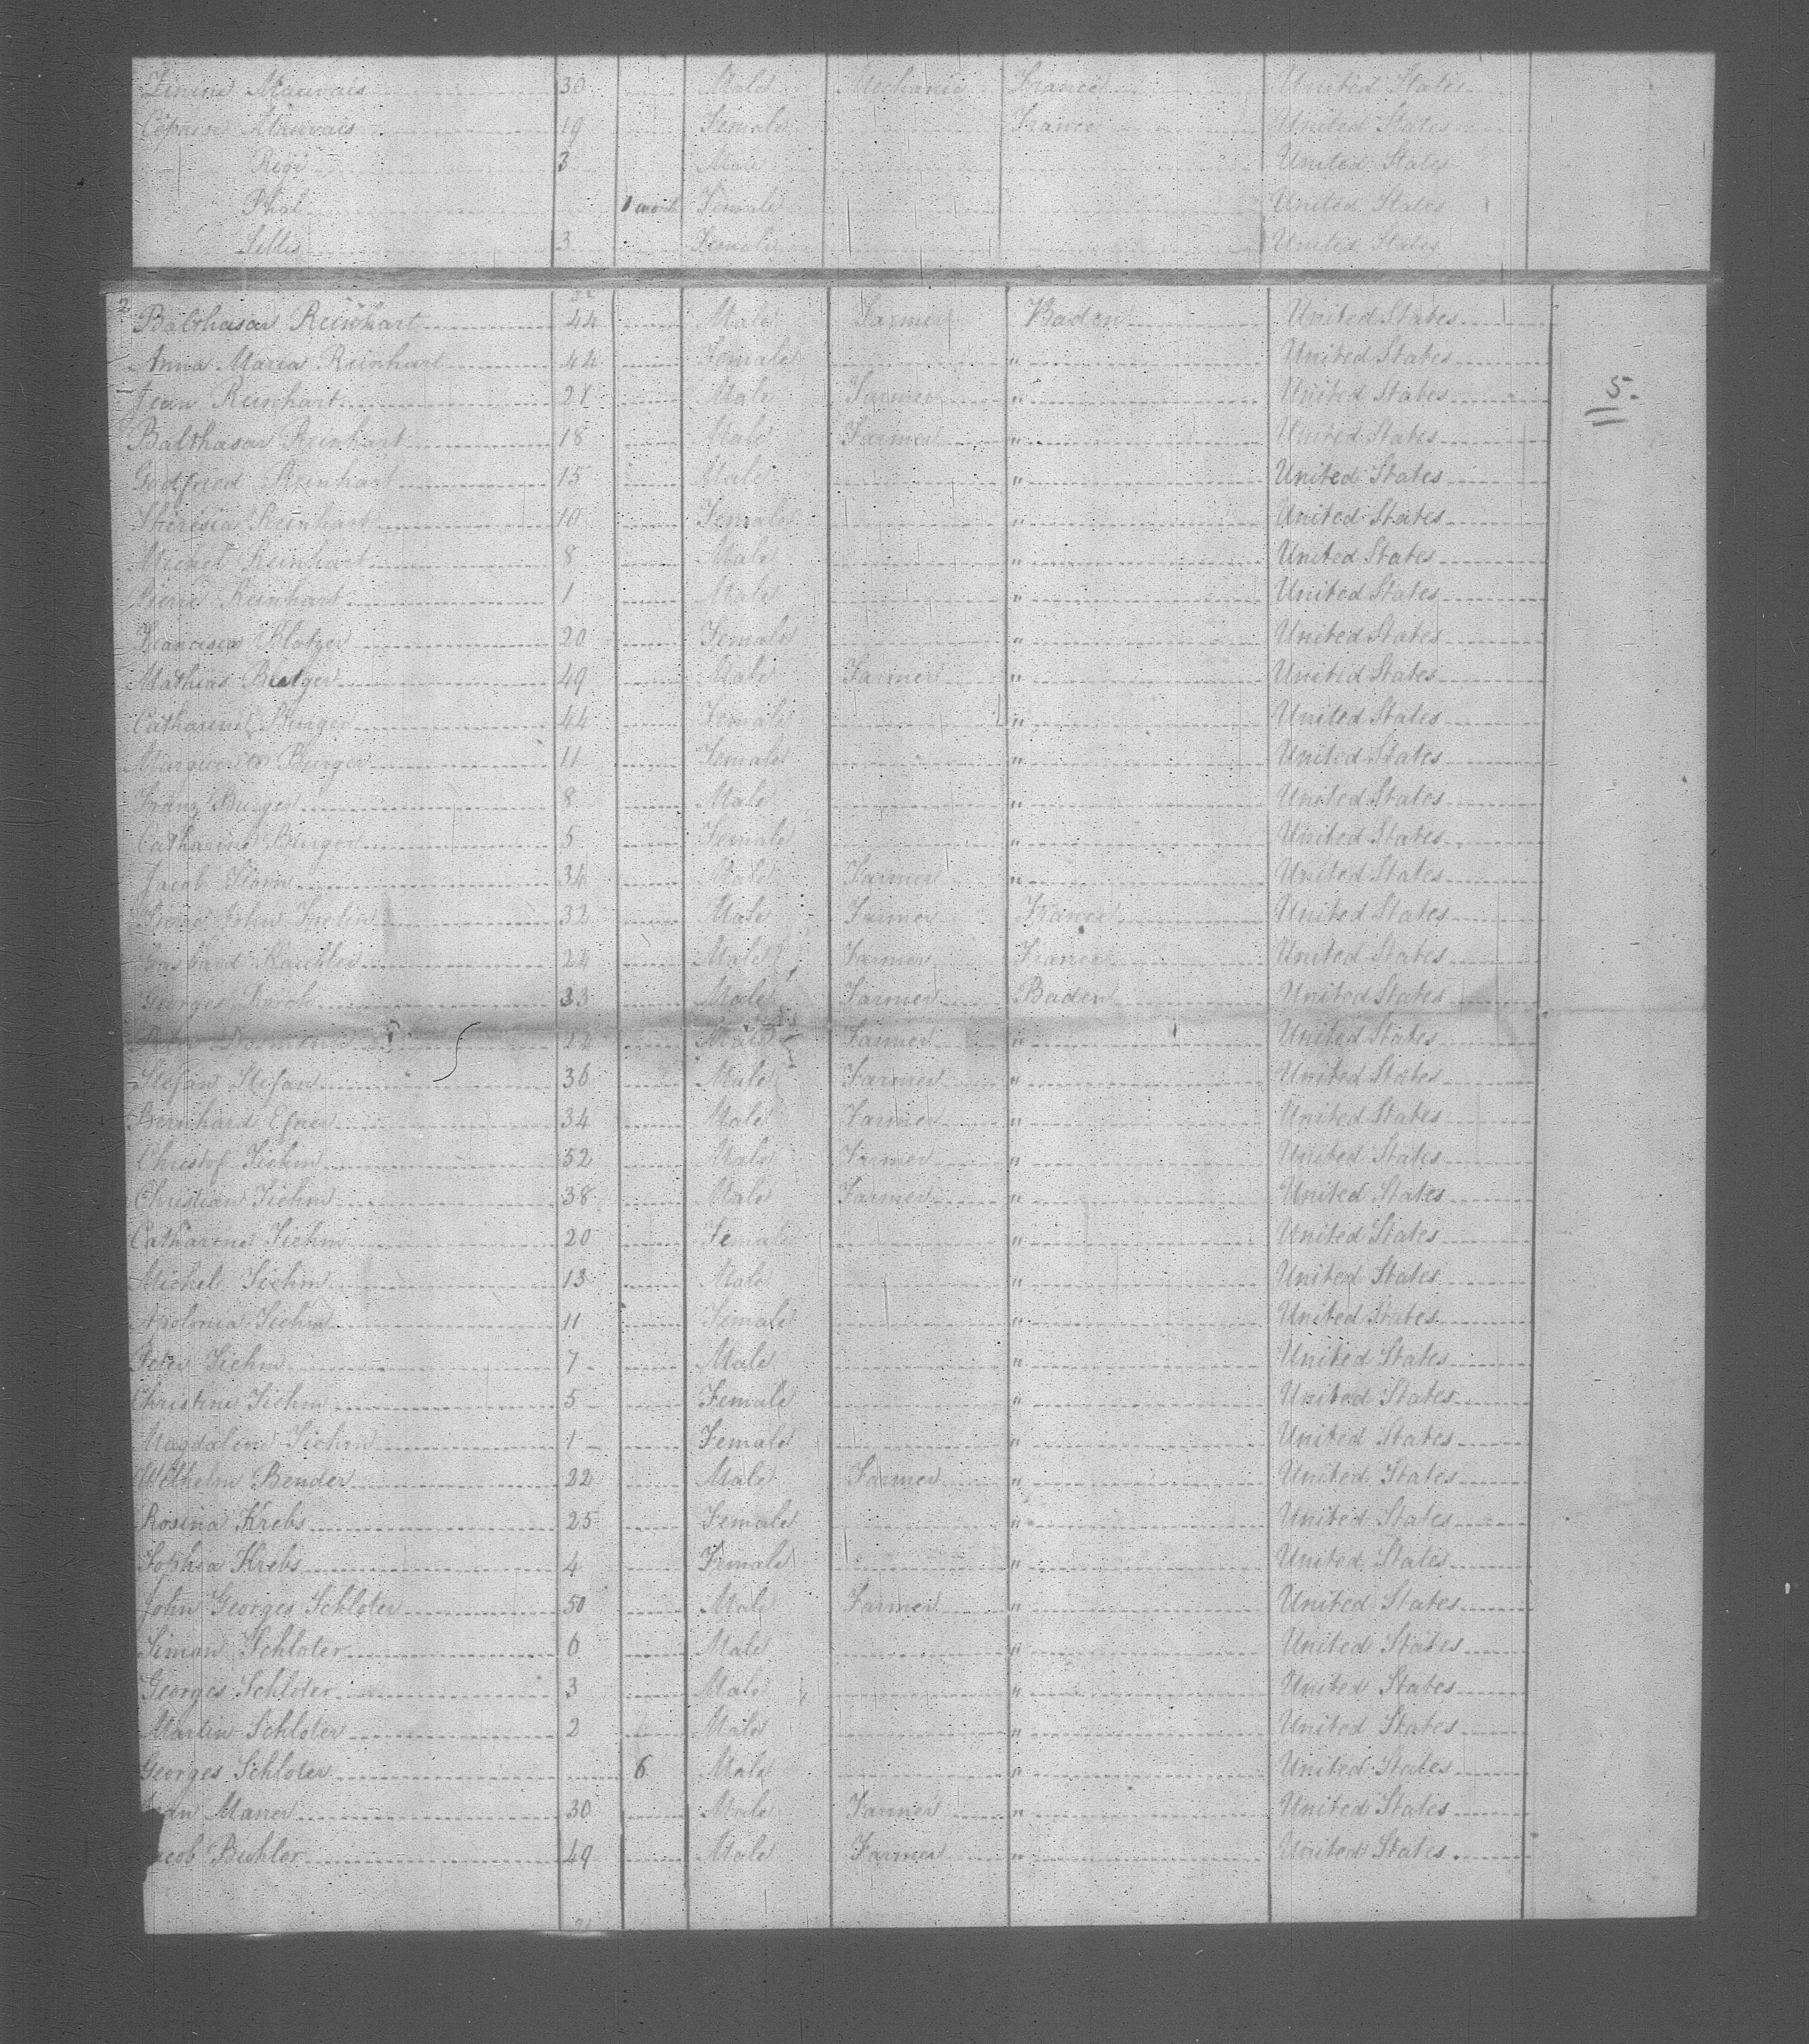 Mauvais 30 Male Mechanic France United States
Mauvais 19 Female France United States
3 Male United States
1 month Female United States
3 Female United States
2 Balthasar Reinhart 44 Male Farmer Baden United States
Anna Maria Reinhart 44 Female " United States
Jean Reinhart 21 Male Farmer " United States
5.
Balthasar Reinhart 18 Male Farmer " United States
Godfried Reinhart 15 Male " United States
Theresia Reinhart 10 Female " United States
Michel Reinhart 8 Male " United States
Pierre Reinhart 1 Male " United States
Francisca Klotzer 20 Female " United States
Mathias Burger 49 Male Farmer " United States
Catharine Burger 44 Female " United States
Marguerite Burger 11 Female " United States
Franz Burger 8 Male " United States
Catharine Burger 5 Female " United States
Jacob 34 Male Farmer " United States
John 32 Male Farmer France United States
Gaspard 24 Male Farmer France United States
Georges 33 Male Farmer Baden United States
Male Farmer " United States
Stefan Stefan 36 Male Farmer " United States
Bernhard Efner 34 Male Farmer " United States
Christof Siehm 52 Male Farmer " United States
Christian Siehm 38 Male Farmer " United States
Catharine Siehm 20 Female " United States
Michel Siehm 13 Male " United States
Apolonia Siehm 11 Female " United States
Peter Siehm 7 Male " United States
Christine Siehm 5 Female " United States
Magdalene Siehm 1 Female " United States
Wilhelm Bender 22 Male Farmer " United States
Rosina Krebs 25 Female " United States
Sophia Krebs 4 Female " United States
John Georges Schloter 50 Male Farmer " United States
Simon Schloter 6 Male " United States
Georges Schloter 3 Male " United States
Martin Schloter 2 Male " United States
Georges Schloter 6 Male " United States
Maner 30 Male Farmer " United States
acob Buhler 49 Male Farmer " United States